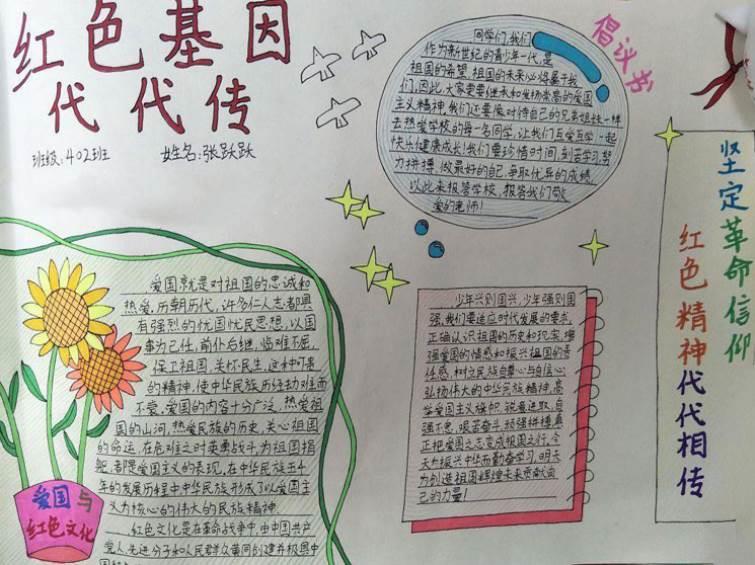 红色基因
代代传
班级:402班 姓名:张跃跃
倡议书
同学们,我们
作为新世纪的青少年一代,是
祖国的希望,祖国的未来必将属于我
们,因此,大家要继承和发扬崇高的爱国
主义精神,我们还要像对待自己的兄弟姐妹一样
去热爱学校的每一名同学,让我们互爱互学一起
快乐健康成长!我们要珍惜时间,刻苦学习,努
力拼搏,做最好的自己,争取优异的成绩,
以此来报答学校,报答我们敬
爱的老师!
爱国就是对祖国的忠诚和
热爱,历朝历代,许多仁人志士都具
有强烈的忧国忧民思想,以国
事为己任,前仆后继,临难不屈,
保卫祖国,关怀民生,这种可贵
的精神,使中华民族历经劫难而
不衰,爱国的内容十分广泛,热爱祖
国的山河,热爱民族的历史,关心祖国
的命运,在危难之时英勇战斗,为祖国捐
躯,都是爱国主义的表现,在中华民族五千
年的发展历程中,中华民族形成了以爱国主
义为核心的伟大的民族精神
红色文化是在革命战争中,由中国共产
党人先进分子和人民群众共同创建并极具中
爱国与
红色文化
少年兴则国兴,少年强则国
强,我们要适应时代发展的要求,
正确认识祖国的历史和现实,增
强爱国的情感和振兴祖国的责
任感,树立民族自尊心与自信心;
弘扬伟大的中华民族精神,高
举爱国主义旗帜,锐意进取,自
强不息,艰苦奋斗,顽强拼搏,真
正把爱国之志变成报国之行,今
天为振兴中华而勤奋学习,明天
为创造祖国辉煌未来贡献自
己的力量!
坚定革命信仰
红色精神代代相传